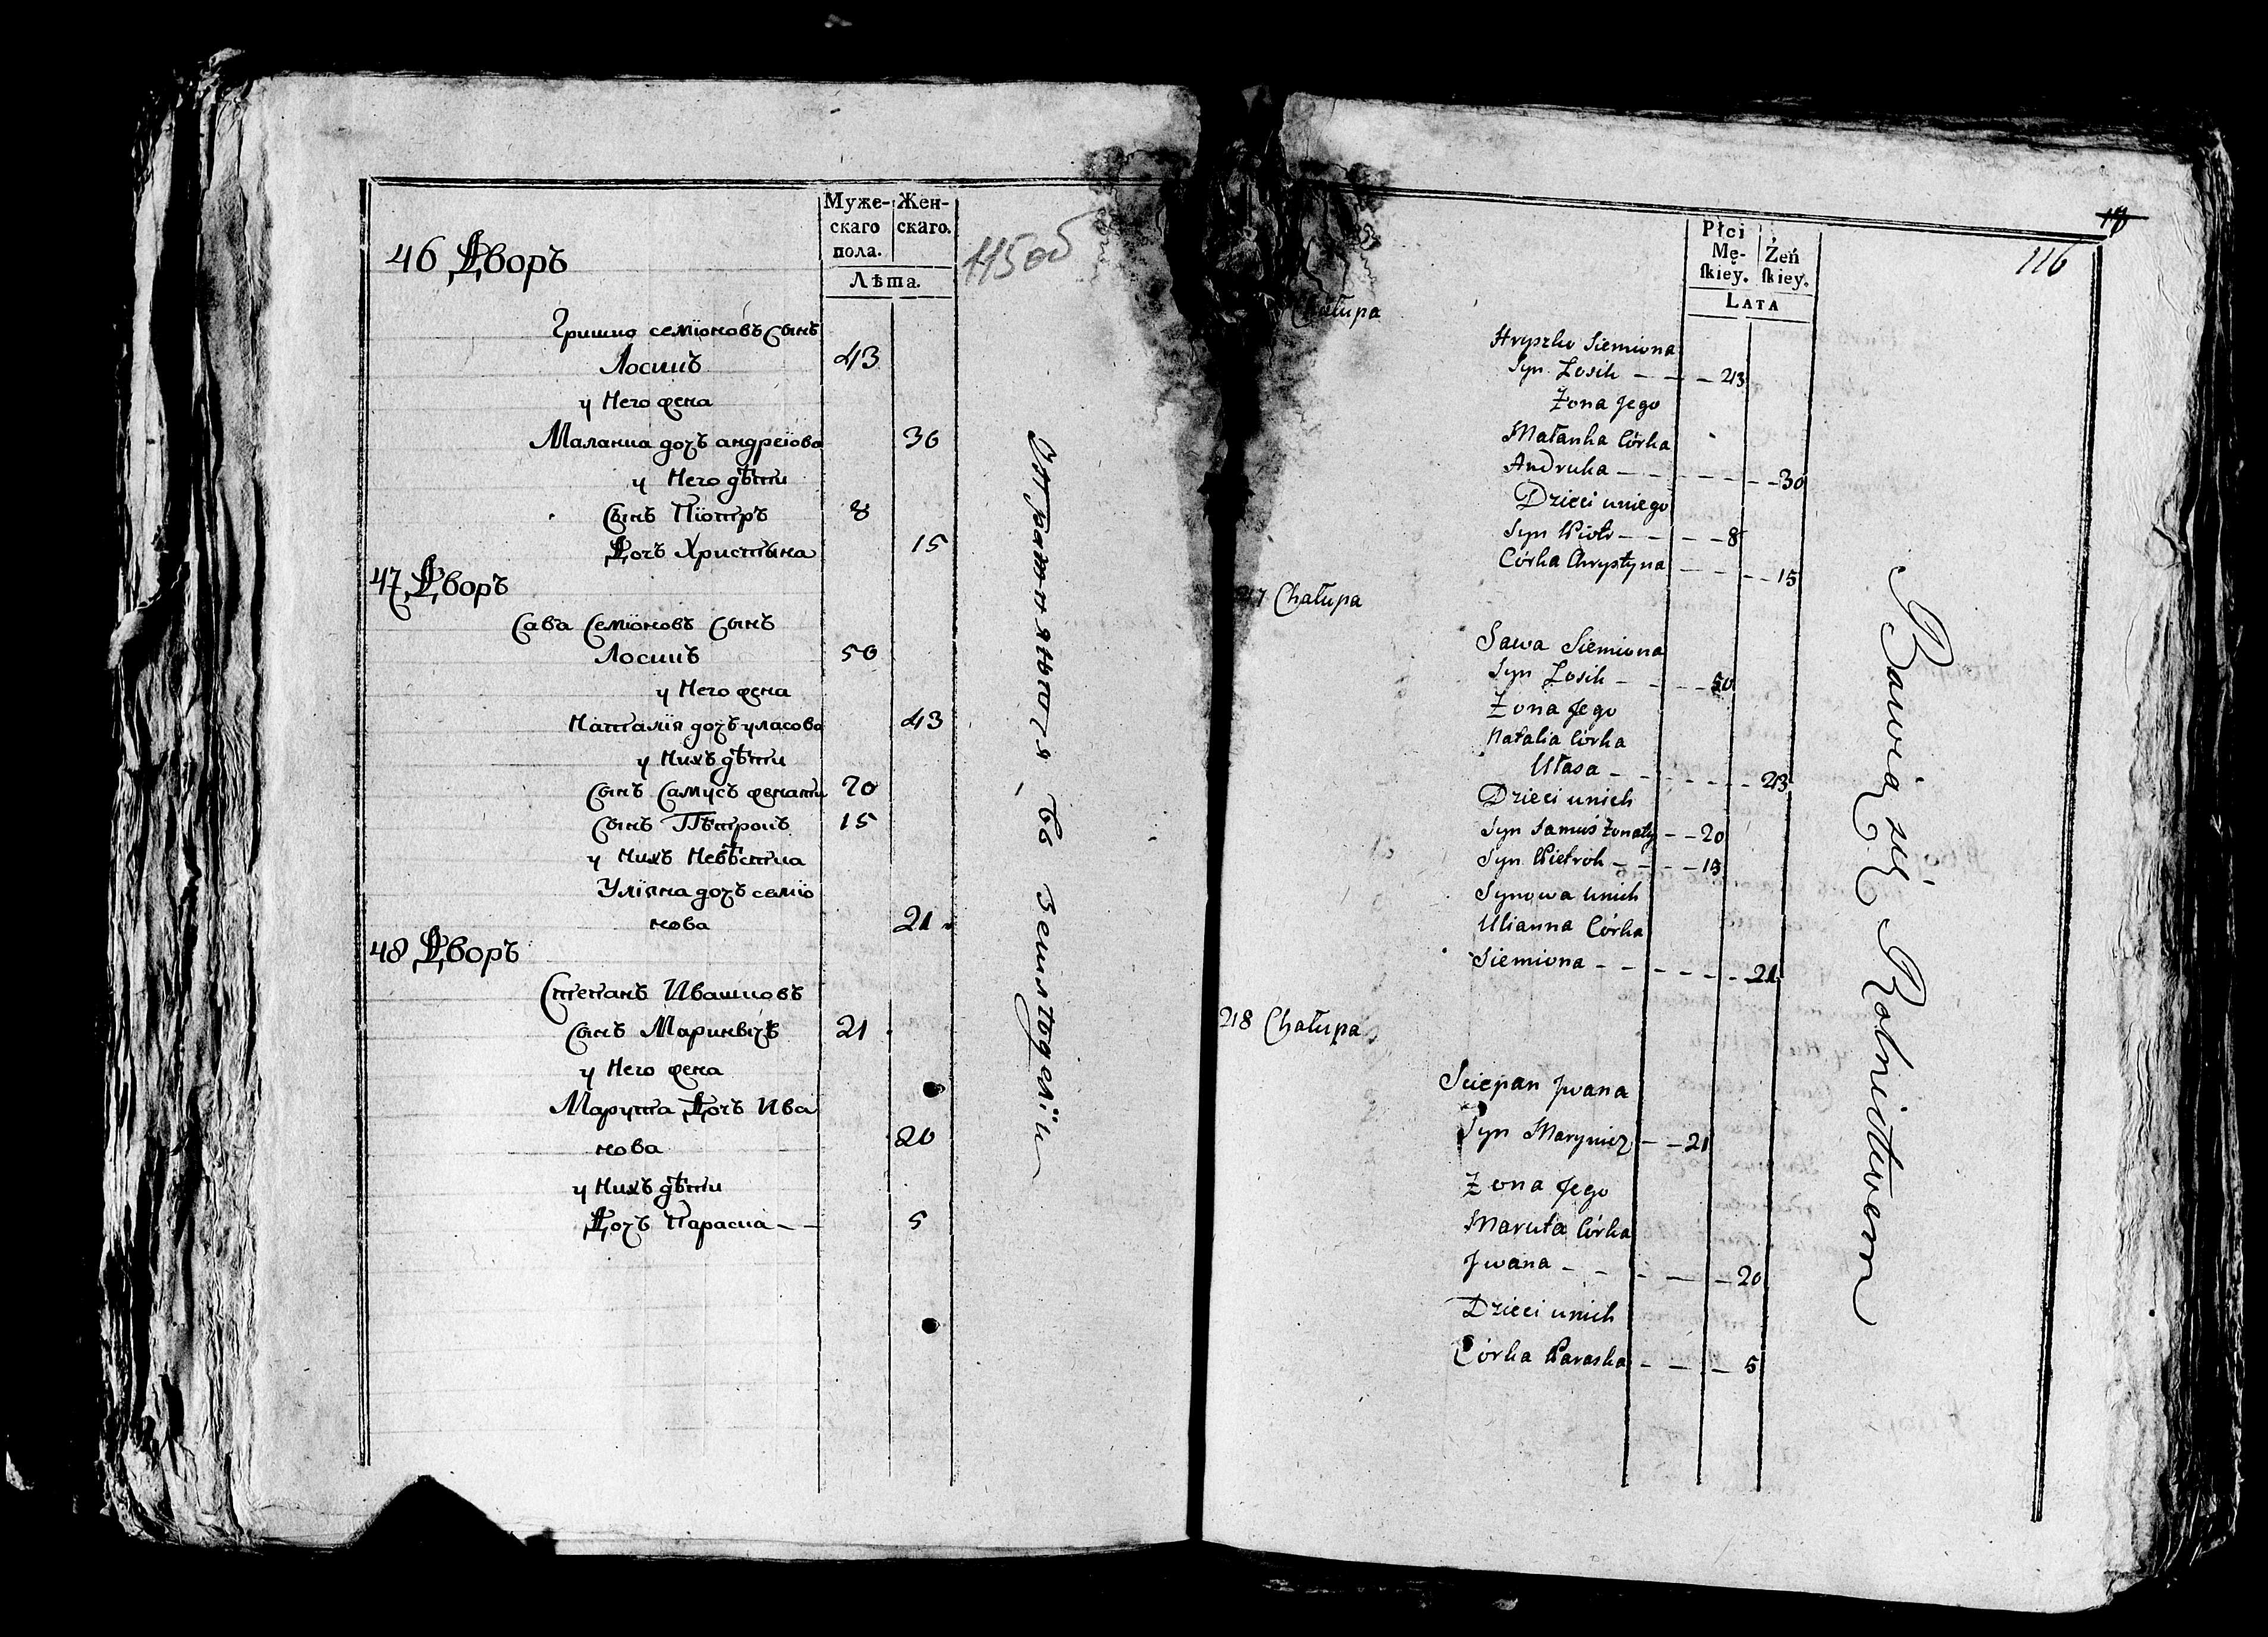 Муже-
скаго
пола.
Жен-
скаго.
Лѣта.
115об
46 Дворъ
Гришко семіоновъ Сынъ
Лосикъ 43
у Него жена
Маланка дочъ андреіова 30
у Него дѣти
Сынъ Піотръ 8
Дочъ Христына 15
47 Дворъ
Сава Семіоновъ Сынъ
Лосикъ 50
у Него жена
Наталія дочъ уласова 43
у Нихъ дѣти
Сынъ Самусъ женати 20
Сынъ Пѣтрокъ 15
у Нихъ Невѣстка
Уліяна дочъ семіо
нова 21
48 Дворъ
Степанъ Ивашковъ
Сынъ Маринвічъ 21
у Него жена
Марута Дочъ Ива
нова 20
у Нихъ дѣти
Дочъ Параска - - 5
въ земльоделіи
116
Płci
Mę-
ſkiey.
Żeń
ſkiey.
LATA
Chałupa
Hryszko Siemiona
Syn Łosik - - - 43
Żona Jego
Małanka Córka
Andruka - - - - - - - 30
Dzieci uniego
Syn Piotr - - - - 8
Córka Chrystyna - - - - 15
47 Chałupa
Sawa Siemiona
Syn Łosik - - - - 50
Żona Jego
Natalia Córka
Ułasa - - - - - - - 43
Dzieci unich
Syn Samuś Żonaty - - 20
Syn Pietrok - - - - 15
Synowa unich
Ulianna Córka
Siemiona - - - - - - - 21
48 Chałupa
Sciepan Jwana
Syn Marynicz - - 21
Żona Jego
Maruta Córka
Jwana - - - - - 20
Dzieci unich
Córka Paraska - - - 5
Bawią się Rolnictwem